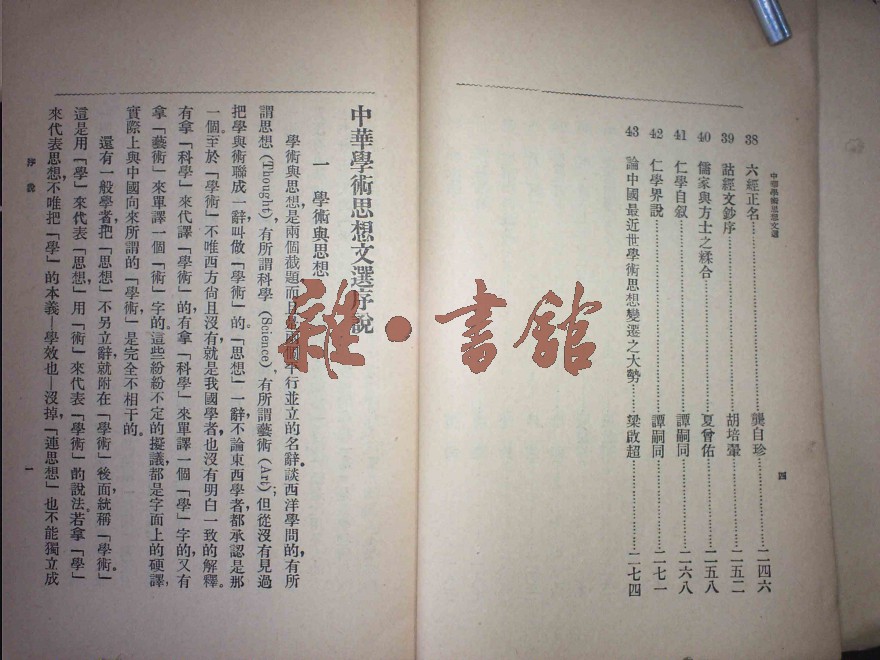 中華學術思想文選
38 六經正名 龔自珍 二四六
39 詁經文鈔序 胡培翬 二五二
40 儒家與方士之糅合 夏曾佑 二五八
41 仁學自叙 譚嗣同 二六八
42 仁學界說 譚嗣同 二七一
43 論中國最近世學術思想變遷之大勢 梁啟超 二七四
四
中華學術思想文選序說
一 學術與思想
學術與思想,是兩個截題而且是兩個平行並立的名辭。談西洋學問的,有所
謂思想(Thought),有所謂科學(Science),有所謂藝術(Art);但從沒有見過
把學與術聯成一辭叫做「學術」的。「思想」一辭,不論東西學者,都承認是那
一個。至於「學術」不唯西方尙且沒有,就是我國學者也沒有明白一致的解釋。
有拿「科學」來代譯「學術」的,有拿「科學」來單譯一個「學」字的,又有
拿「藝術」來單譯一個「術」字的。這些紛紛不定的擬議,都是字面上的硬譯,
實際上與中國向來所謂的「學術」是完全不相干的。
還有一般學者,把「思想」不另立辭,就附在「學術」後而統稱「學術」。
這是用「學」來代表「思想,」用「術」來代表「學術」的說法。若拿「學」
來代表思想,不唯把「學」的本義—學效也—沒掉,「連思想」也不能獨立成
序說
一
雜·書館